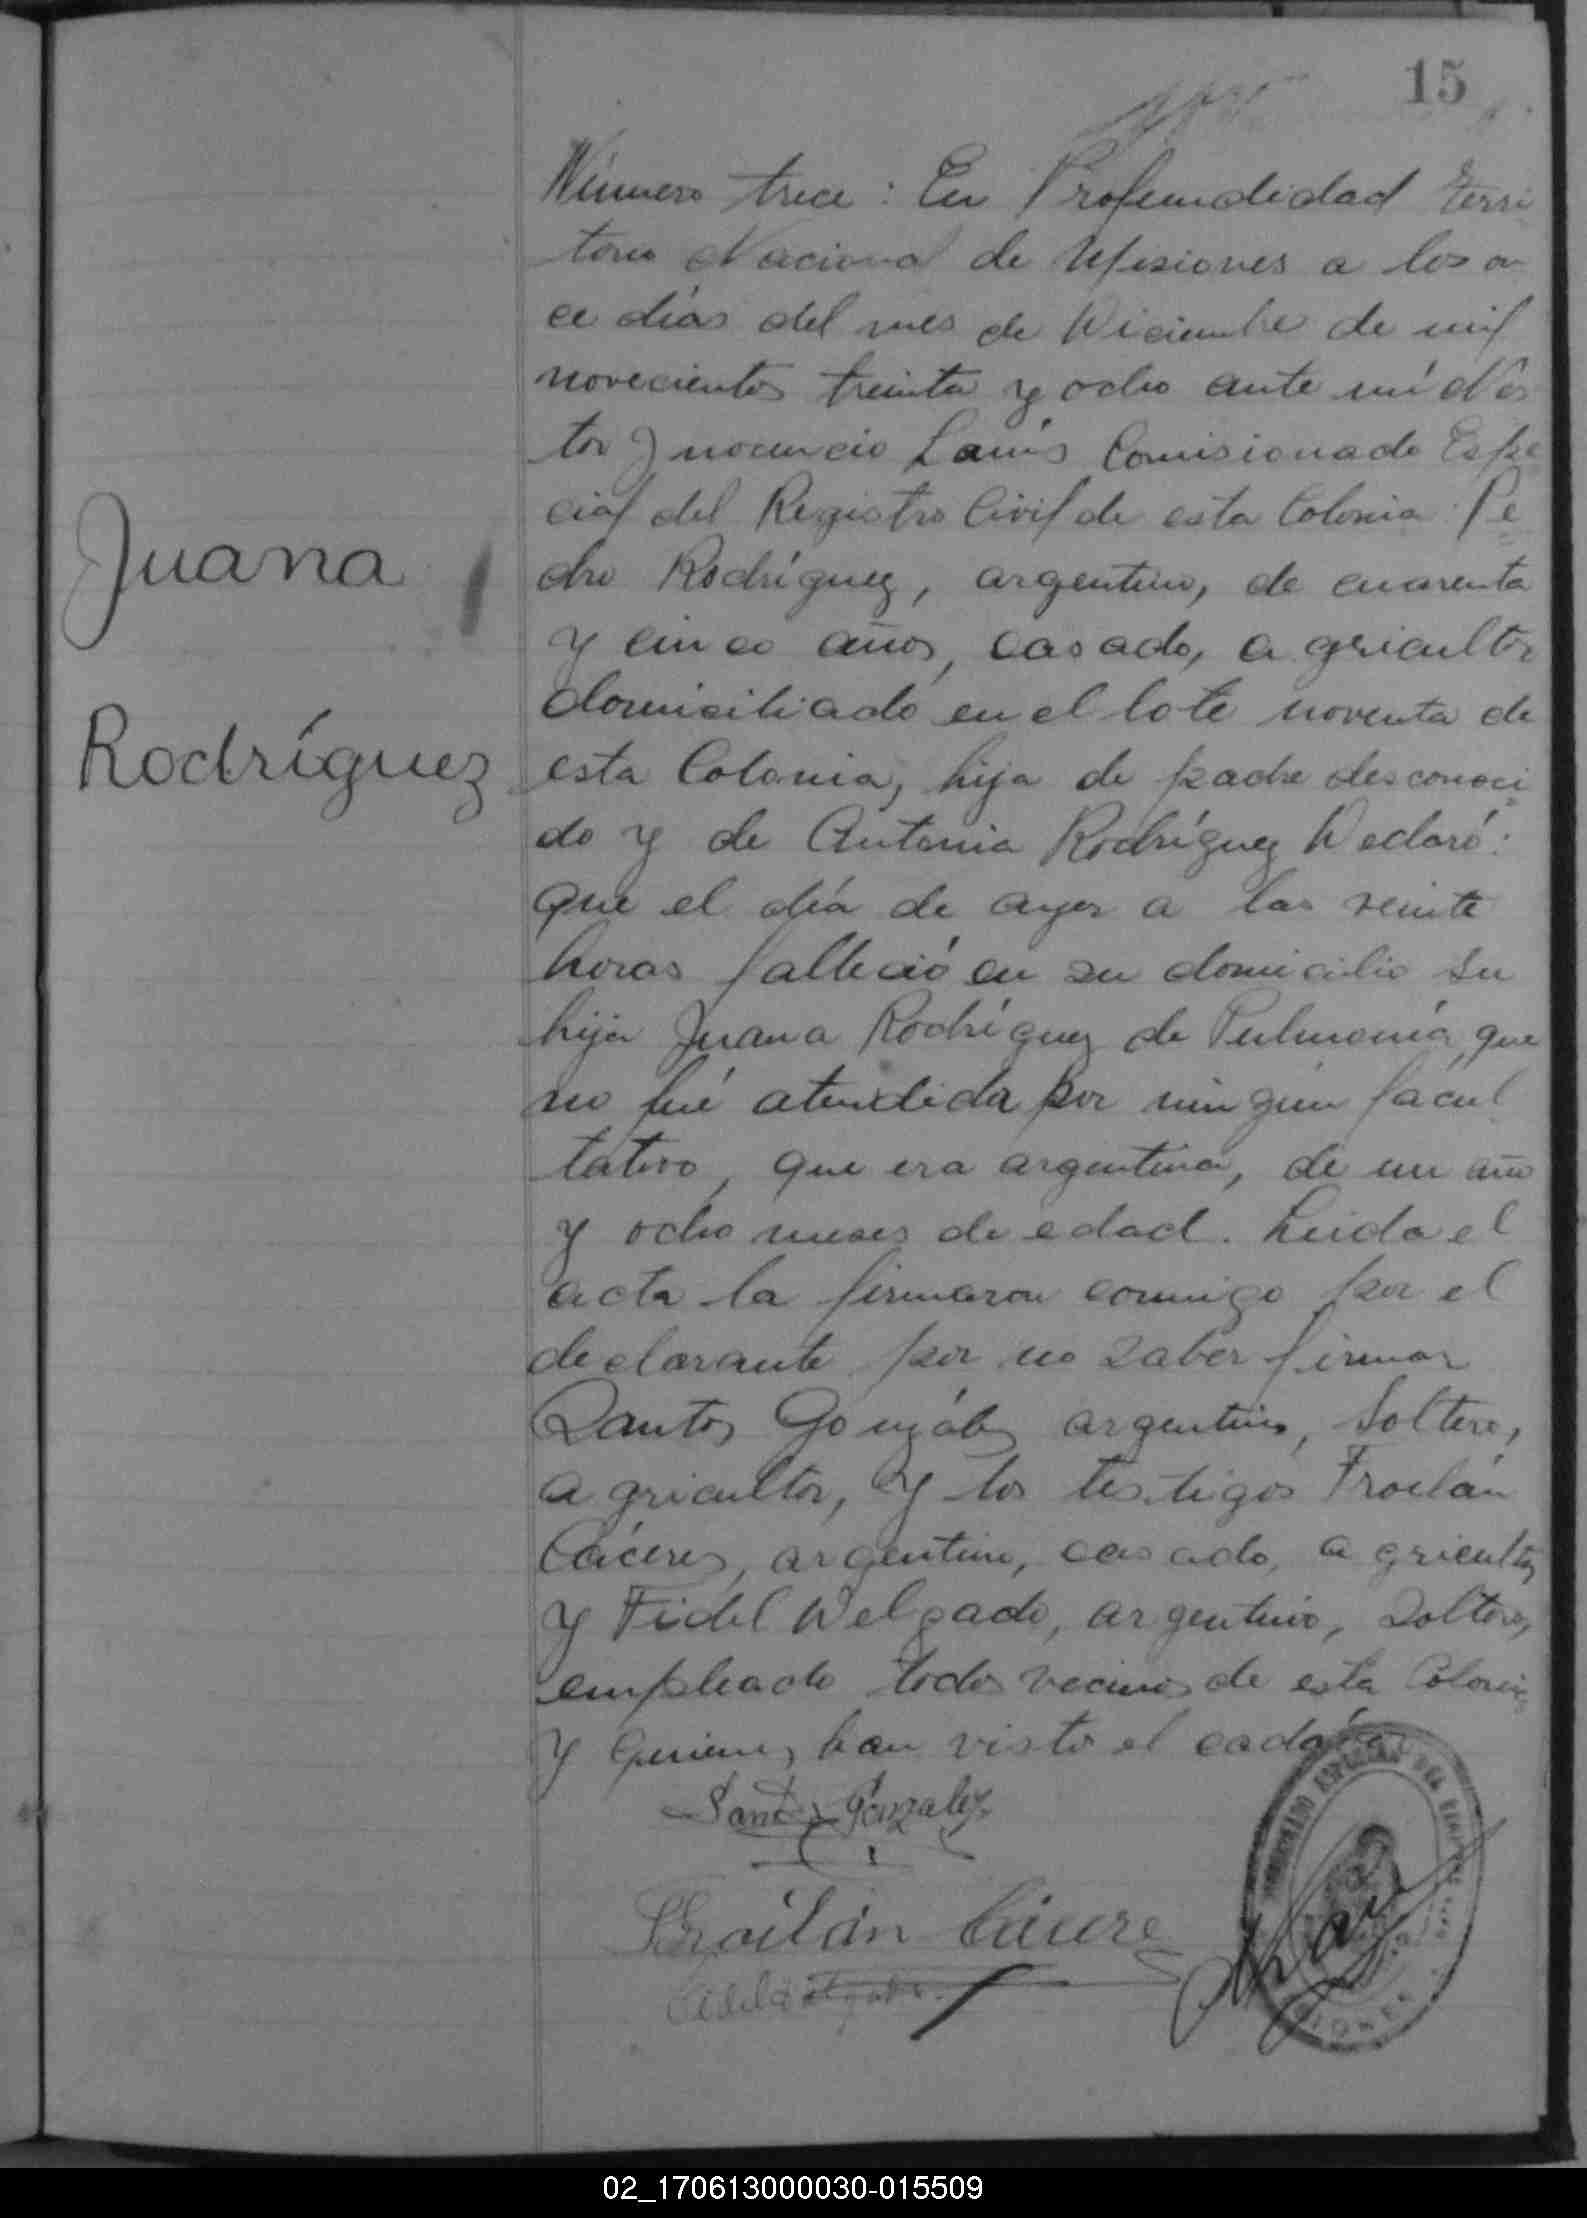 15
Número trece: En Profundidad Terri
torio Nacional de Misiones a los on
ce días del mes de Diciembre de mil
novecientos treinta y ocho ante mí Nés
tor Inocencio Lanús Comisionado Espe
cial del Registro Civil de esta Colonia: Pe
dro Rodríguez, argentino, de cuarenta
y cinco años, casado, agricultor
domiciliado en el lote noventa de
esta Colonia, hijo de padre desconoci
do y de Antonia Rodríguez Declaró:
que el día de ayer a las veinte
horas falleció en su domicilio su
hija Juana Rodríguez de Pulmonía, que
no fué atendida por ningún facul
tativo, que era argentina, de un año
y ocho meses de edad. Leida el
acta la firmaron conmigo por el
declarante por no saber firmar
Santos González argentino, soltero,
agricultor, y los testigos Froilán
Cáceres, argentino, casado, agricultor
y Fidel Delgado, argentino, soltero,
empleado todos vecinos de esta Colonia
y quienes han visto el cadáver
Juana
Rodríguez
Santos Gonzalez
Froilán Cácere
Fidel Delgado
02_170613000030-015509